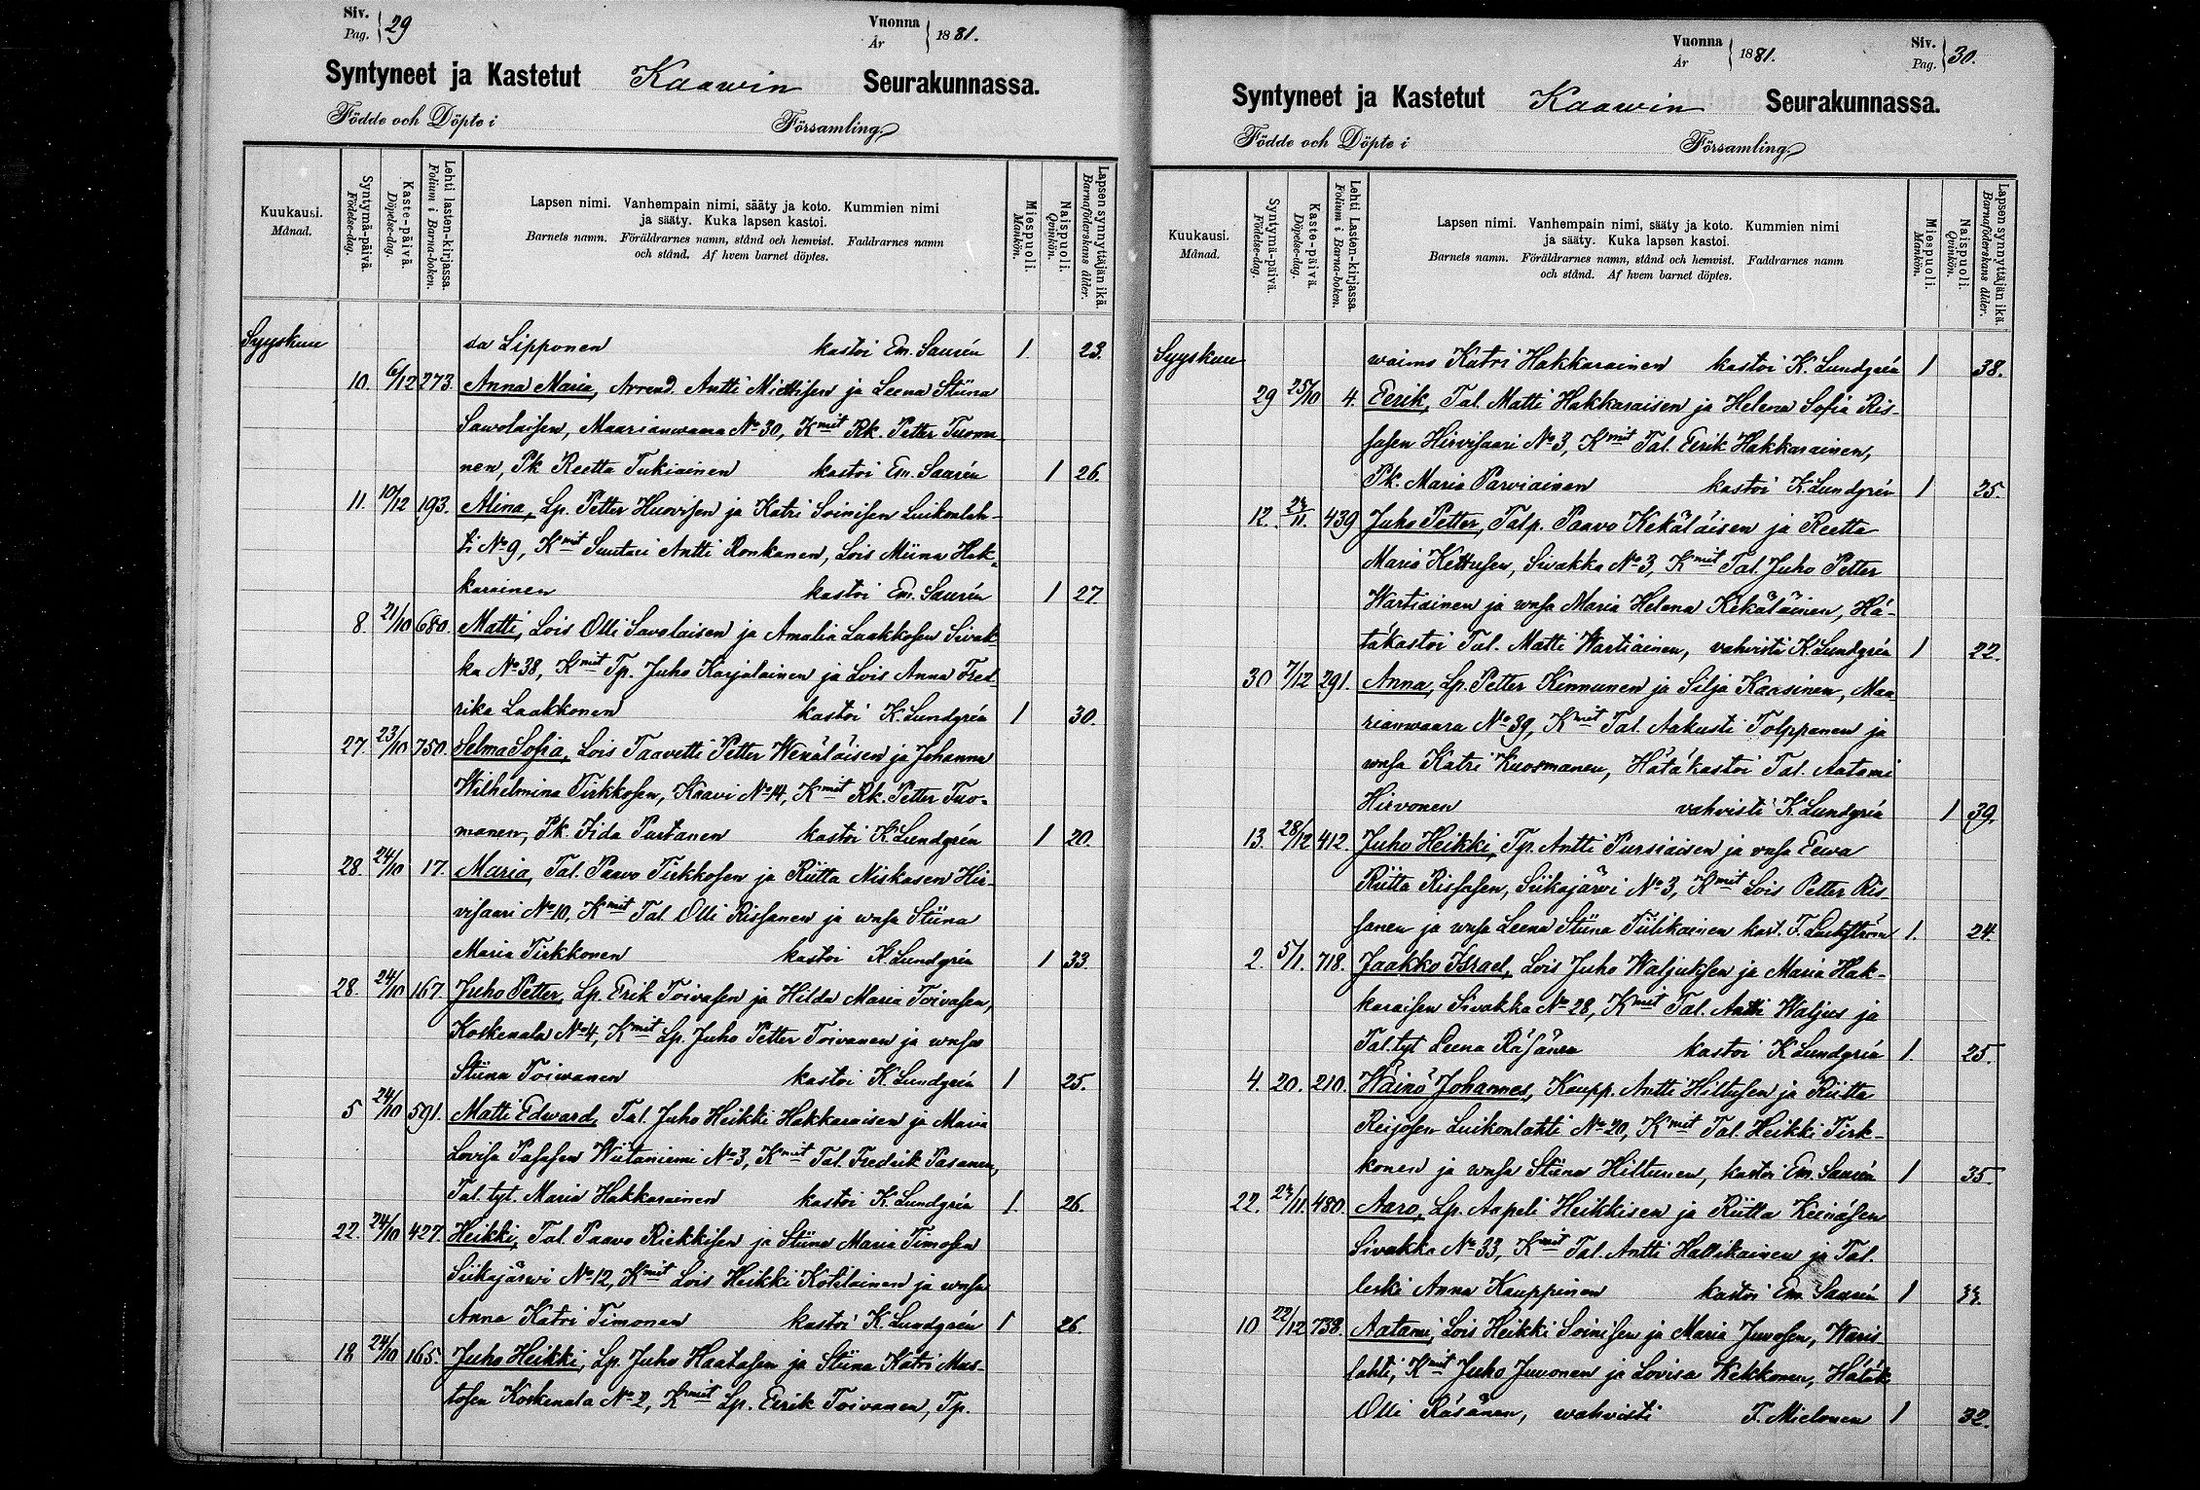 Siv. Pag. 29
Vuonna År 1881.
Syntyneet ja Kastetut Kaawin Seurakunnassa.
Födde och Döpte i Församling
Kuukausi. Månad.
Syntymä-päivä. Födelse-dag.
Kaste-päivä. Döpelse-dag.
Lehti lasten-kirjassa. Folium i Barna-boken.
Lapsen nimi. Vanhempain nimi, sääty ja koto. Kummien nimi
ja sääty. Kuka lapsen kastoi.
Barnets namn. Föräldrarnes namn, stånd och hemvist. Faddrarnes namn
och stånd. Af hvem barnet döptes.
Miespuoli. Mankön.
Naispuoli. Qvinkön.
Lapsen synnyttäjän ikä. Barnaföderskans ålder.
Syyskuu da Lipponen kastoi Em. Saurén 1. 23.
10. 6/12 273. Anna Maria, Arrend. Antti Miettisen ja Leena Stiina
Sawolaisen, Maarianwaara No 30, Kmit Rk. Petter Tuoma
nen, Pk Reetta Tukiainen kastoi Em. Saurén 1 26.
11. 10/12 193. Alina, Lp. Petter Huovisen ja Katri Soinisen Luikonlah-
ti No 9, Kmit Suutari Antti Ronkanen, Lois Miina Hak-
karainen kastoi Em. Saurén 1 27.
8. 21/10 680. Matti, Lois Olli Savolaisen ja Amalia Laakkosen Sivak-
ka No 38, Kmit Tp. Juho Karjalainen ja Lois Anna Fred-
rika Laakkonen kastoi K. Lundgrén 1 30.
27. 23/10 750. Selma Sofia, Lois Taavetti Petter Wenäläisen ja Johanna
Wilhelmina Pirkkosen, Kaavi No 14, Kmit Rk. Petter Tuo-
manen, Pk. Iida Partanen kastoi K. Lundgrén 1 20.
28. 24/10 17. Maria, Tal. Paavo Tirkkosen ja Riitta Niskasen Hir-
visaari No 10, Kmit Tal. Olli Rissanen ja wmsa Stiina
Maria Tirkkonen kastoi K Lundgrén 1 33.
28. 24/10 167 Juho Petter, Lp. Erik Toivasen ja Hilda Maria Toivasen,
Koskenala No 4, Kmit Lp. Juho Petter Toivanen ja wmsa
Stiina Toiwanen kastoi K. Lundgrén 1 25.
5 24/10 591. Matti Edward, Tal. Juho Heikki Hakkaraisen ja Maria
Lovisa Pasasen Wiitaniemi No 3, Kmit Tal. Fredrik Pasanen,
Tal. tyt. Maria Hakkarainen kastoi K. Lundgrén 1. 26.
22. 24/10 427. Heikki, Tal. Paavo Riekkisen ja Stiina Maria Timosen
Siikajärwi No 12, Kmit Lois Heikki Kotilainen ja wmsa
Anna Katri Timonen kastoi K. Lundgrén 1 26.
18 24/10 165. Juho Heikki, Lp. Juho Haatasen ja Stiina Katri Mus-
tosen Koskenala No 2, Kmit Lp. Eerik Toivanen, Tp.
Vuonna År 1881.
Siv. Pag. 30.
Syntyneet ja Kastetut Kaawin Seurakunnassa.
Födde och Döpte i Församling
Kuukausi. Månad.
Syntymä-päivä. Födelse-dag.
Kaste-päivä. Döpelse-dag.
Lehti Lasten-kirjassa. Folium i Barna-boken.
Lapsen nimi. Vanhempain nimi, sääty ja koto. Kummien nimi
ja sääty. Kuka lapsen kastoi.
Barnets namn. Föräldrarnes namn, stånd och hemvist. Faddrarnes namn
och stånd. Af hvem barnet döptes.
Miespuoli. Mankön.
Naispuoli. Qvinkön.
Lapsen synnyttäjän ikä. Barnaföderskans ålder.
Syyskuu waimo Katri Hakkarainen kastoi K. Lundgrén 1 38.
29 25/10 4. Eerik, Tal. Matti Hakkaraisen ja Helena Sofia Ris-
sasen Hirvisaari No 3, Kmit Tal. Eerik Hakkarainen,
Pk. Maria Parviainen kastoi K. Lundgrén 1 25.
12. 439 Juho Petter, Talp. Paavo Kekäläisen ja Reetta
Maria Kettusen, Sivakka No 3, Kmit Tal. Juho Petter
Wartiainen ja wmsa Maria Helena Kekäläinen, Hä-
täkastoi Tal. Matti Wartiainen, vahvisti K. Lundgrén 1 22.
30 7/12 291. Anna, Lp. Petter Kinnunen ja Silja Kaasinen, Maa
rianwaara No 39, Kmit Tal. Aakusti Tolppanen ja
wmsa Katri Kuosmanen, Hätäkastoi Tal. Aatami
Hirvonen vahvisti K. Lundgrén 1 39.
13. 28/12 412. Juho Heikki, Tp. Antti Pursiaisen ja vmsa Eewa
Riitta Rissasen, Siikajärvi No 3, Kmit Lois Petter Ris-
sanen ja wmsa Leena Stiina Tiilikainen kast. 1. 24.
2. 5/1. 718. Jaakko Israel, Lois Juho Waljuksen ja Maria Hak-
karaisen Sivakka No 28, Kmit Tal. Antti Waljus ja
Tal. tyt Leena Räsänen kastoi K Lundgrén 1. 25.
4. 20. 210. Wäinö Johannes, Kaupp. Antti Hiltusen ja Riitta
Reijosen Luikonlahti No 20, Kmit Tal. Heikki Tirk-
konen ja wmsa Stiina Hiltunen, kastoi Em. Saurén 1 35.
22. 480. Aaro, Lp. Aapeli Heikkisen ja Riitta Keinäsen
Sivakka No 33, Kmit Tal. Antti Hallikainen ja Tal.
leski Anna Kauppinen kastoi Em. Saurén 1 33.
10 22/12 738. Aatami, Lois Heikki Soinisen ja Maria Juvosen, Waris-
lahti, Kmit Juho Juvonen ja Lovisa Kekkonen, Hätäk
Olli Räsänen, wahvisti F. Mielonen 1 32.